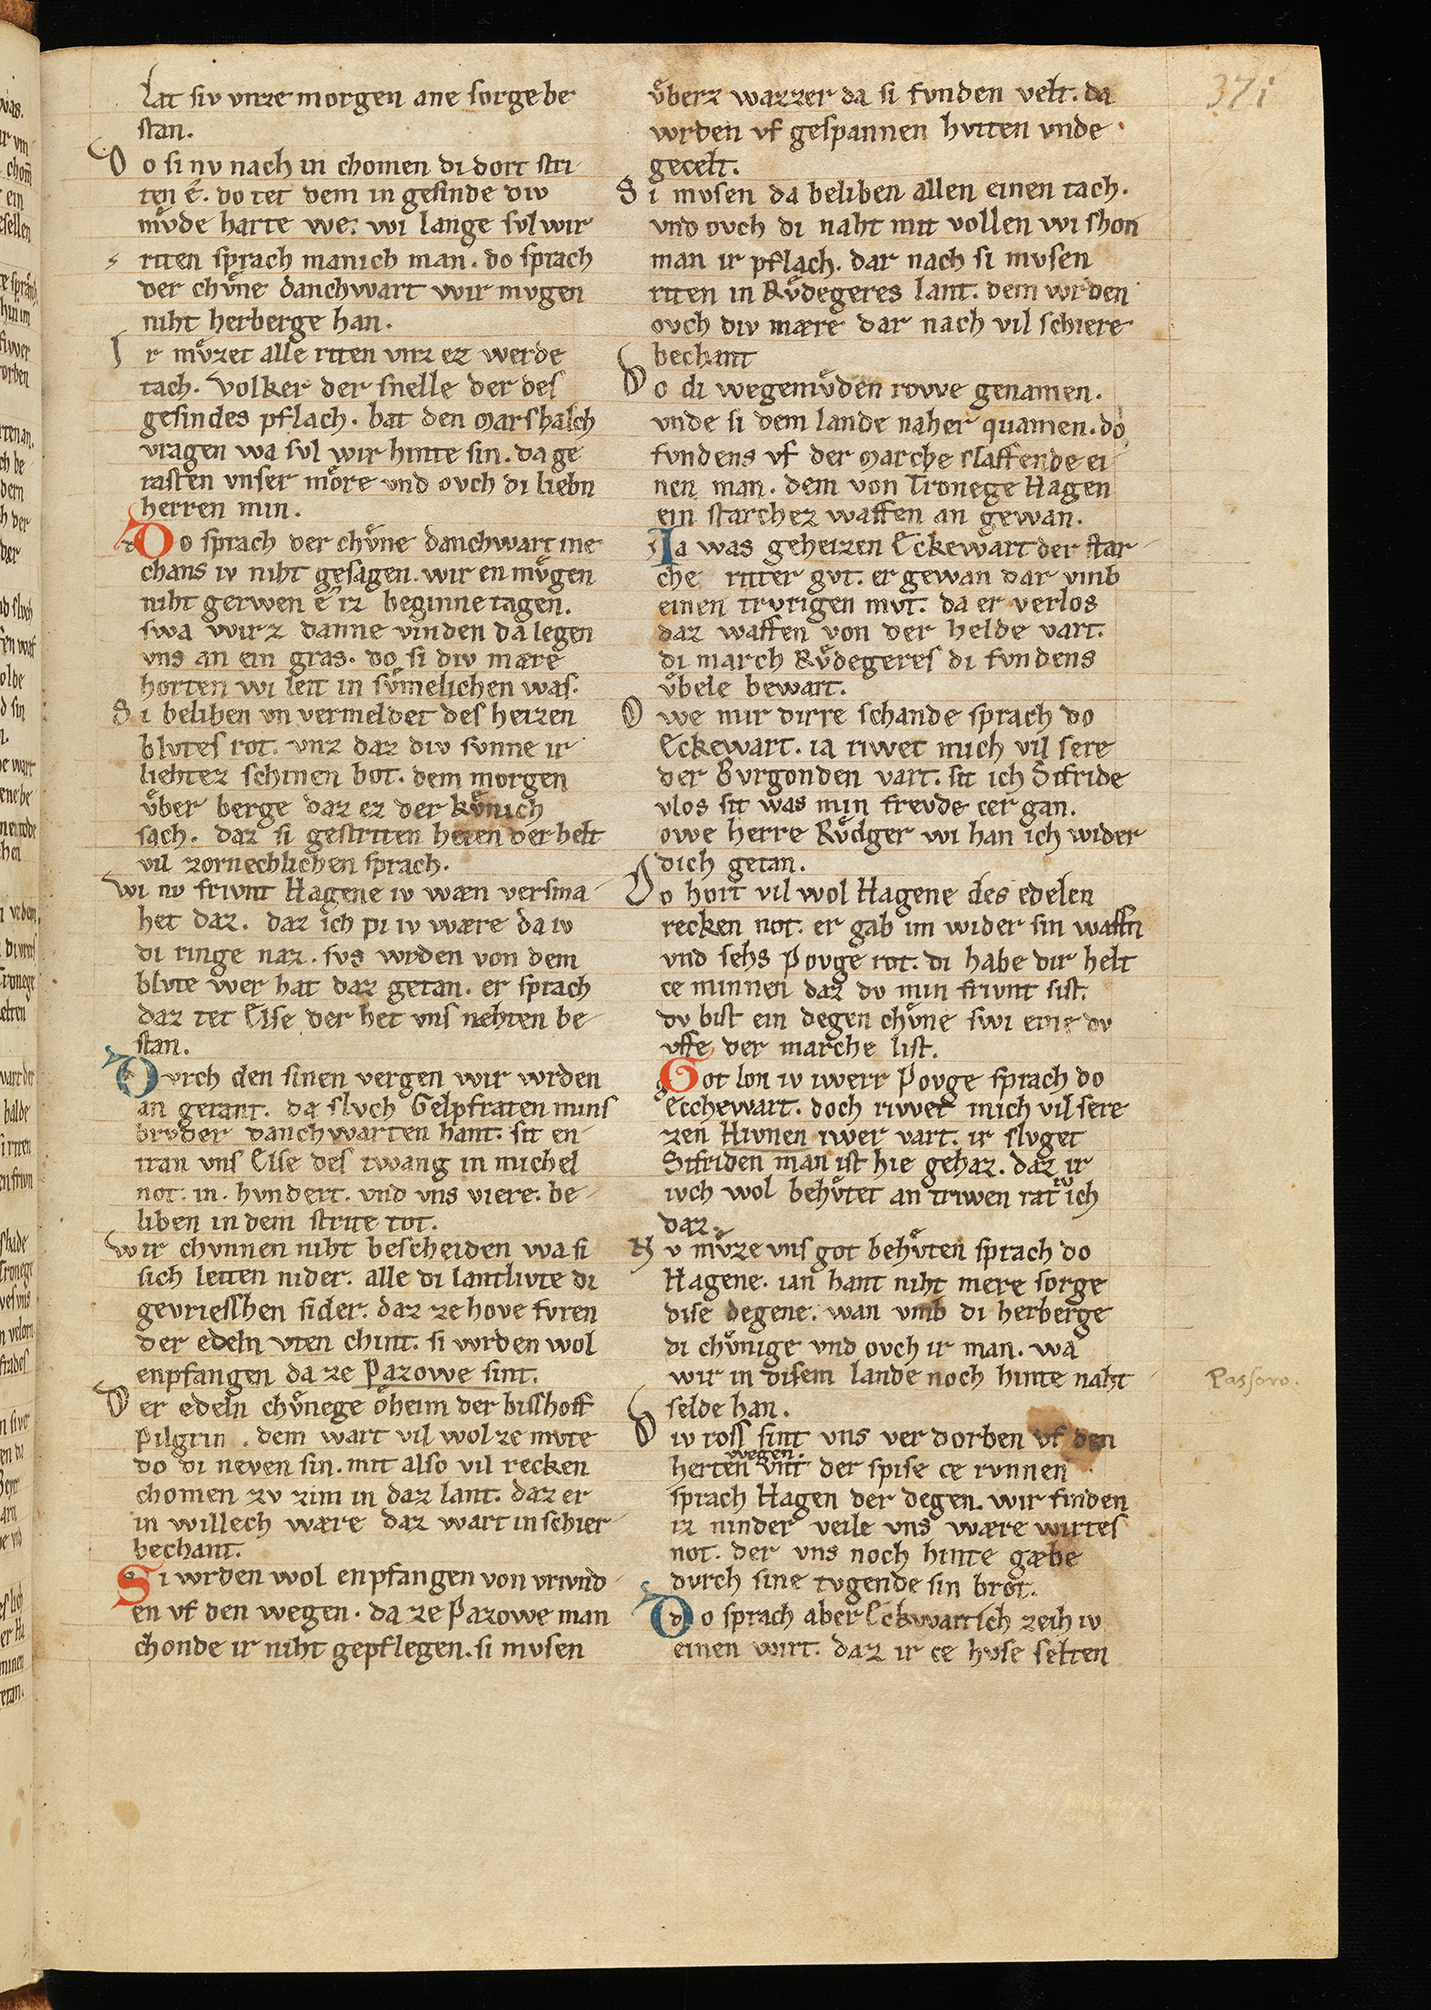 Lat siv vnze morgen ane sorge be
stan.
Do si nv nach in chomen di dort stri
ten ê. do tet dem in gesinde div
mvͦde harte we. wi lange svl wir
riten sprach manich man. do sprach
der chvͤne danchwart wir mvgen
niht herberge han.
Ir mvͦzet alle riten vnz ez werde
tach. Volker der snelle der des
gesindes pflach. bat den marshalch
vragen wa svl wir hinte sin. da ge
rasten vnser moͤre vnd ovch di liebn
herren min.
Do sprach der chvͤne danchwart ine
chans iv niht gesagen. wir en mvͤgen
niht gerwen ê iz beginne tagen.
swa wirz danne vinden da legen
vns an ein gras. do si div mære
horten wi leit in svͤmelichen was.
Si beliben vn vermeldet des heizen
blvtes rot. vnz daz div svnne ir
liehtez schinen bot. dem morgen
vͤber berge daz ez der kvͤnich
sach. daz si gestriten heten der helt
vil zornechlichen sprach.
Wi nv frivnt Hagene iv wæn versma
het daz. daz ich pi iv wære da iv
di ringe naz. svs wrden von dem
blvte wer hat daz getan. er sprach
daz tet Else der het vns nehten be
stan.
Dvrch den sinen vergen wir wrden
an gerant. da slvch Gelpfraten mins
brvder danchwarten hant. sit en
tran vns Else des twang in michel
not. in. hvndert. vnd vns viere. be
liben in dem strite tot.
Wir chvnnen niht bescheiden wa si
sich leiten nider. alle di lantlivte di
gevriesshen sider. daz ze hove fvren
der edeln vten chint. si wrden wol
enpfangen da ze Pazowe sint.
Der edeln chvͤnege oͤheim der bisshoff
Pilgrin. dem wart vil wol ze mvte
do di neven sin. mit also vil recken
chomen zv zim in daz lant. daz er
in willech wære daz wart in schier
bechant.
Si wrden wol enpfangen von vrivnd
en vf den wegen. da ze Pazowe man
chonde ir niht gepflegen. si mvsen
vͤberz wazzer da si fvnden velt. da
wrden vf gespannen hvtten vnde
gecelt.
Si mvsen da beliben allen einen tach.
vnd ovch di naht mit vollen wi shon
man ir pflach. dar nach si mvsen
riten in Rvͦdegeres lant. dem wrden
ovch div mære dar nach vil schiere
bechant
Do di wegemvͦden rowe genamen.
vnde si dem lande naher quamen. do
fvndens vf der marche slaffende ei
nen man. dem von Tronege Hagen
ein starchez waffen an gewan.
Ia was geheizen Eckewart der star
che ritter gvt. er gewan dar vmb
einen trvrigen mvt. da er verlos
daz waffen von der helde vart.
di march Rvͦdegeres di fvndens
vͤbele bewart.
Owe mir dirre schande sprach do
Eckewart. ia riwet mich vil sere
der Bvrgonden vart. sit ich Sifride
vlos sit was min frevde cer gan.
owe herre Rvͦdger wi han ich wider
dich getan.
Do hort vil wol Hagene des edelen
recken not. er gab im wider sin waffn
vnd sehs Povge rot. di habe dir helt
ce minnen daz dv min frivnt sist.
dv bist ein degen chvͤne swi eine dv
vffe der marche list.
Got lon iv iwerr Povge sprach do
Ecchewart. doch riwet mich vil sere
zen Hivnen iwer vart. ir slvget
Sifriden man ist hie gehaz. daz ir
ivch wol behvͤtet an triwen rat iv ich
daz.
Nv mvͤze vns got behvͤten sprach do
Hagene. ian hant niht mere sorge
dise degene. wan vmb di herberge
di chvͤnige vnd ovch ir man. wa
wir in disem lande noch hinte naht
selde han.
Passovo.
Div ross sint vns ver dorben vf den
herten wegen. vnt der spise ce rvnnen
sprach Hagen der degen. wir finden
iz ninder veile vns wære wirtes
not. der vns noch hinte gæbe
dvrch sine tvgende sin brot.
Do sprach aber Eckwart ich zeih iv
einen wirt. daz ir ce hvse selten
371